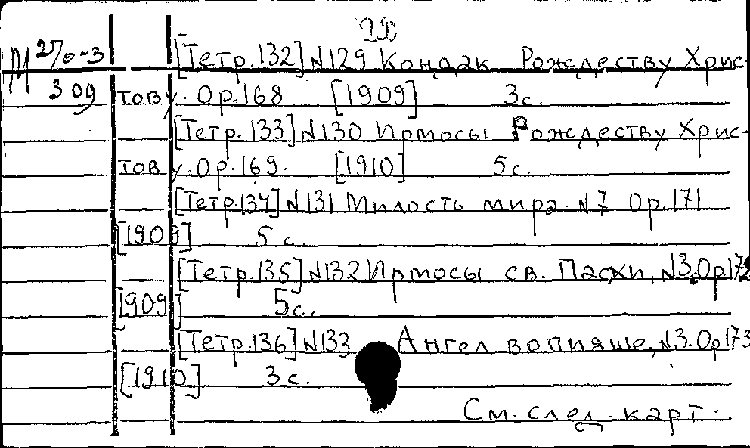 22
М 270-3
309
[Тетр.132] №129 Кондак Рождеству Хрис-
тову. Ор.168 [1909] 3с.
[Тетр.133] №130 Ирмосы Рождеству Хрис-
тову. Ор.169. [1910] 5с.
[Тетр.134] №131 Милость мира. №7 Ор.171
[1909] 5 с.
[Тетр.135] №132 Ирмосы св. Пасхи, №3. Ор172
[1909] 5с.
[Тетр.136] №133 Ангел вопияше, №3. Ор173
[1910] 3с.
См. след. карт.